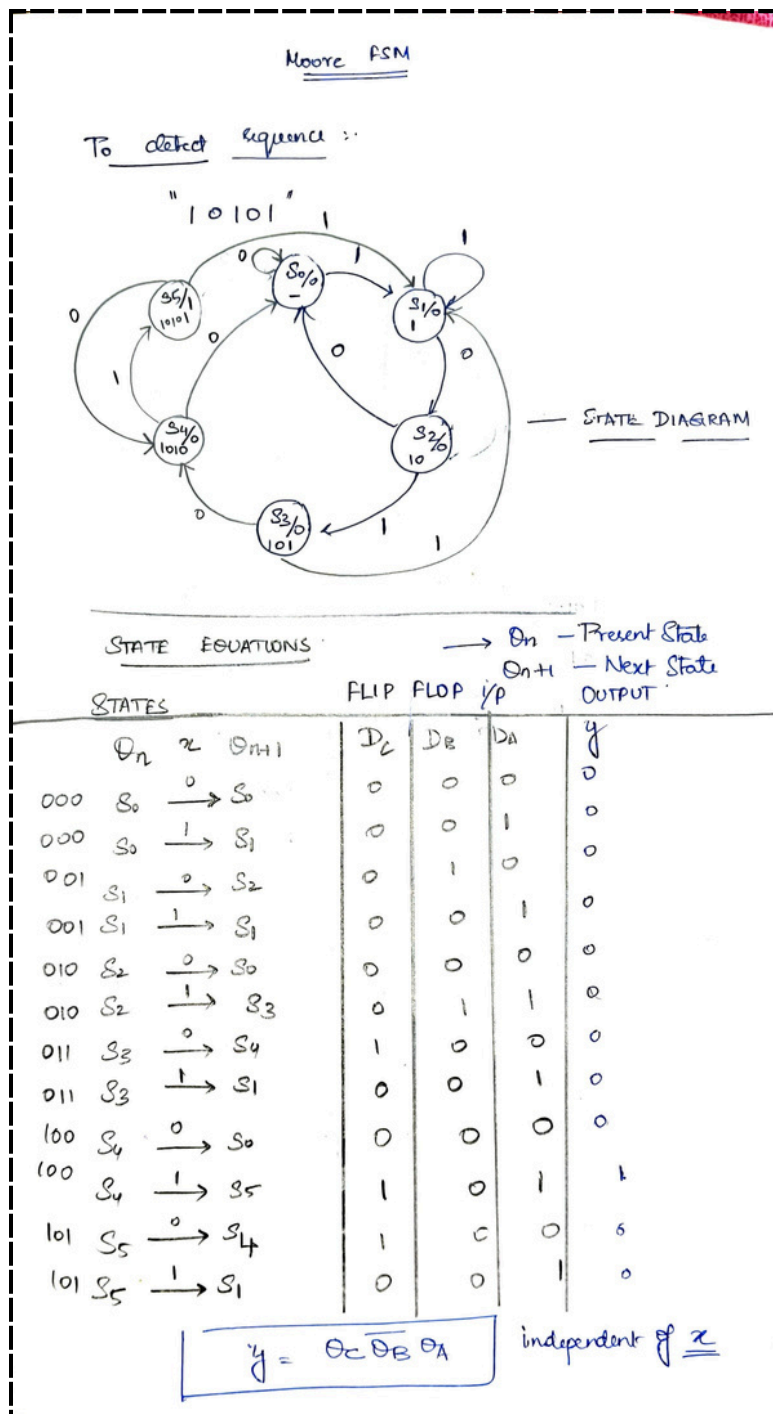 Moore FSM
To detect sequence :-
"10101"
1
0 S0/0 1 1
–
S5/1
10101
S1/0
1
0 0 0 0
1
S4/0
1010
S2/0
10
— STATE DIAGRAM
0 S3/0 1 1
101
STATE EQUATIONS → Qn – Present State
Qn+1 – Next State
STATES FLIP FLOP i/p OUTPUT
Qn x Qn+1 DC DB DA y
000 S0 0→ S0 0 0 0 0
000 S0 1→ S1 0 0 1 0
001 S1 0→ S2 0 1 0 0
001 S1 1→ S1 0 0 1 0
010 S2 0→ S0 0 0 0 0
010 S2 1→ S3 0 1 1 0
011 S3 0→ S4 1 0 0 0
011 S3 1→ S1 0 0 1 0
100 S4 0→ S0 0 0 0 0
100 S4 1→ S5 1 0 1 1
101 S5 0→ S4 1 0 0 0
101 S5 1→ S1 0 0 1 0
y = QC Q̅B̅ QA independent of x